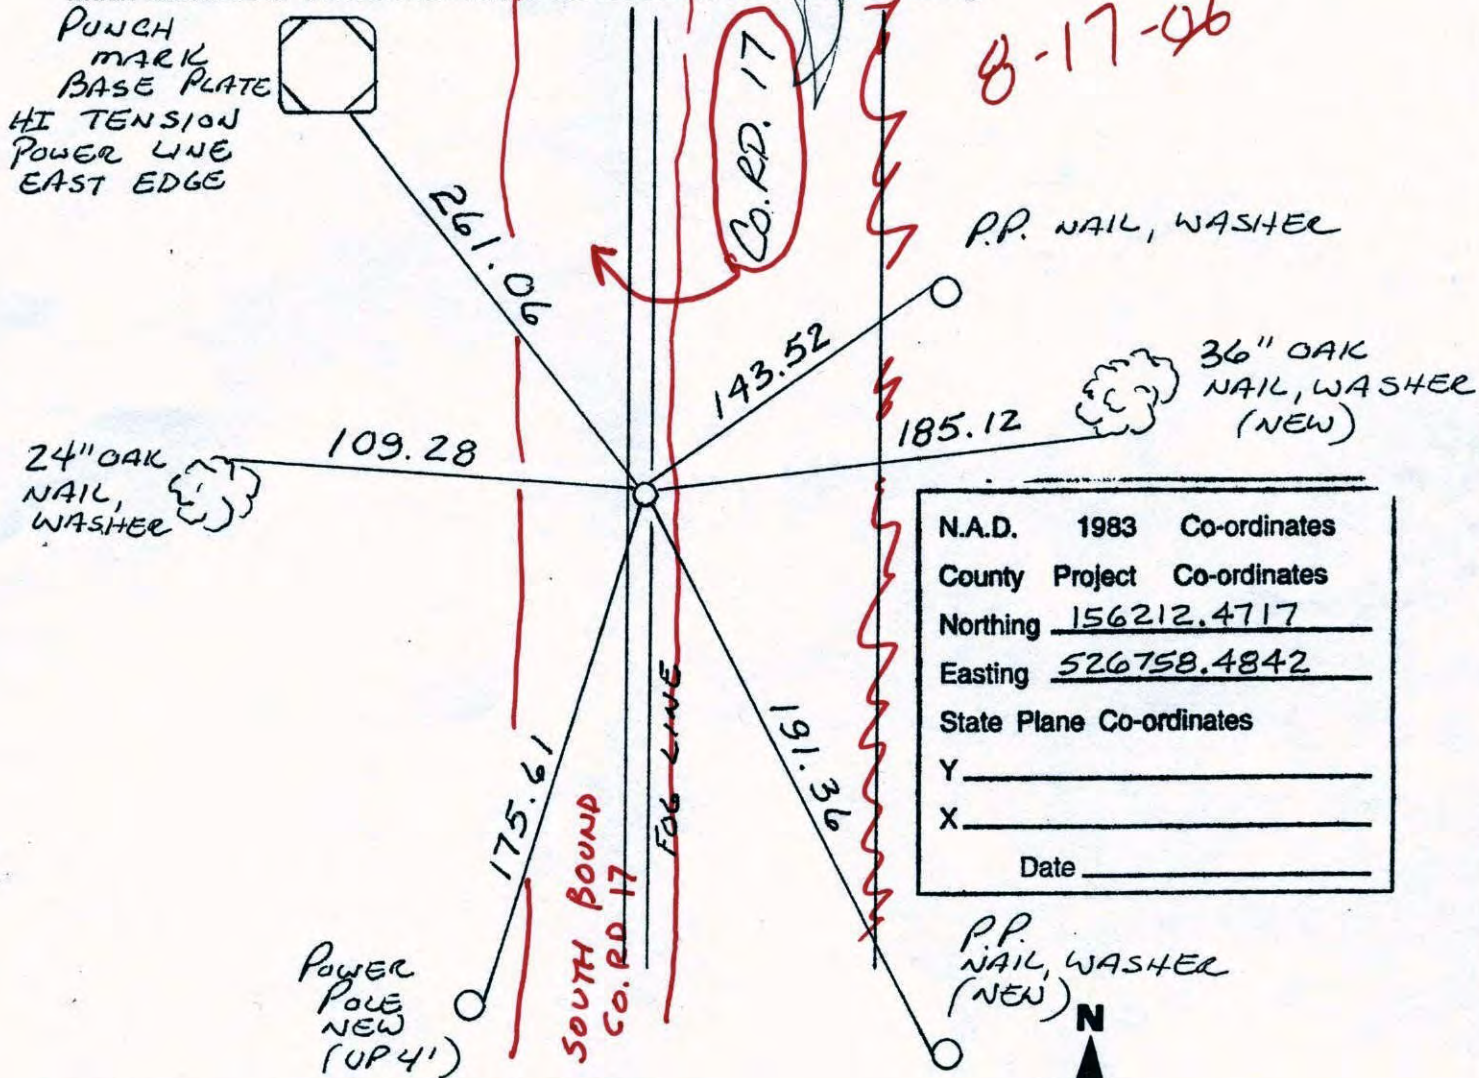 PUNCH
MARK
BASE PLATE
HI TENSION
POWER LINE
EAST EDGE
CO. RD. 17
8-17-06
261.06
P.P. NAIL, WASHER
143.52
36" OAK
NAIL, WASHER
(NEW)
185.12
24" OAK
NAIL,
WASHER
109.28
N.A.D. 1983 Co-ordinates
County Project Co-ordinates
Northing 156212.4717
Easting 526758.4842
State Plane Co-ordinates
Y
X
Date
175.61
SOUTH BOUND
CO. RD 17
FOG LINE
191.36
POWER
POLE
NEW
(UP 4')
P.P.
NAIL, WASHER
(NEW)
N